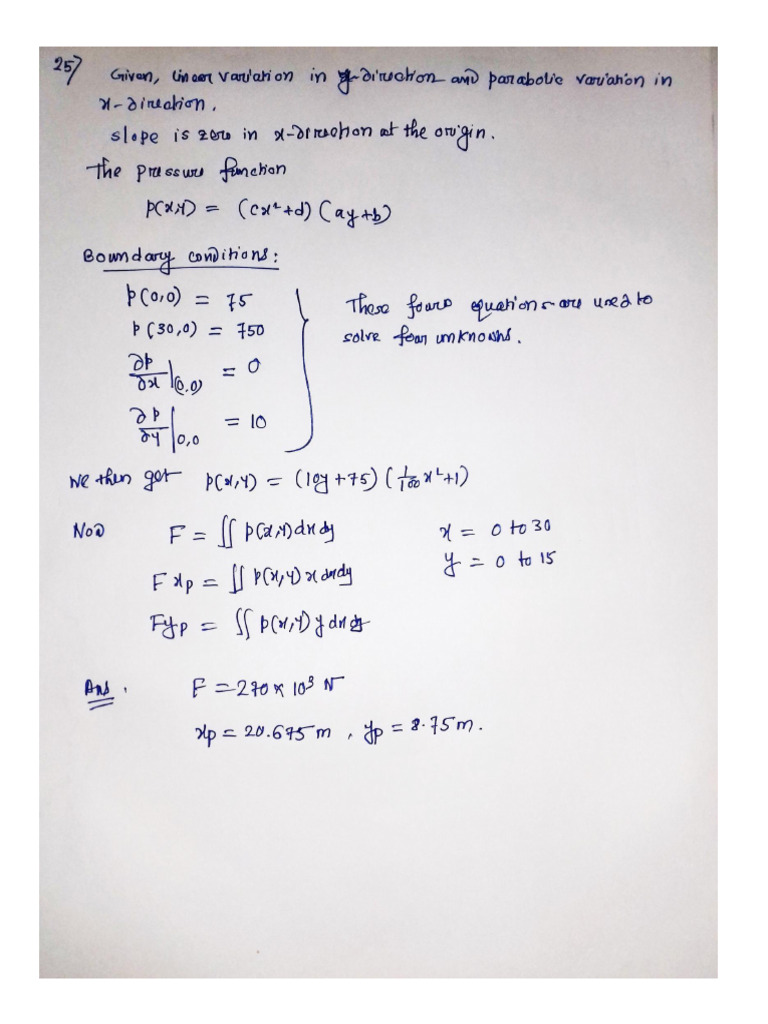 25) Given, linear variation in y-direction and parabolic variation in
x-direction.
slope is zero in x-direction at the origin.
The pressure function
p(x,y) = (cx²+d) (ay+b)
Boundary conditions:
p(0,0) = 75
p(30,0) = 750
∂p/∂x|(0,0) = 0
∂p/∂y|0,0 = 10
These four equations are used to
solve four unknowns.
We then get p(x,y) = (10y+75) (1/100 x²+1)
Now F = ∬ p(x,y) dx dy x = 0 to 30
F xp = ∬ p(x,y) x dx dy y = 0 to 15
F yp = ∬ p(x,y) y dx dy
Ans. F = 270 × 10³ N
xp = 20.675 m , yp = 8.75 m.